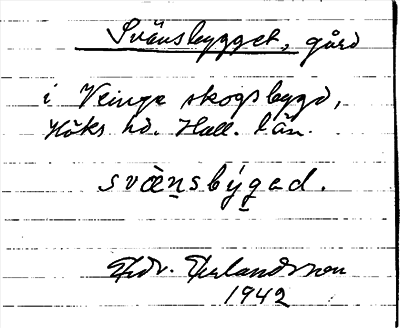 Svänsbygget, gård
i Veinge skogsbygd,
Höks hd. Hall. län.
svὲnsbýgad.
Edv. Erlandsson
1942